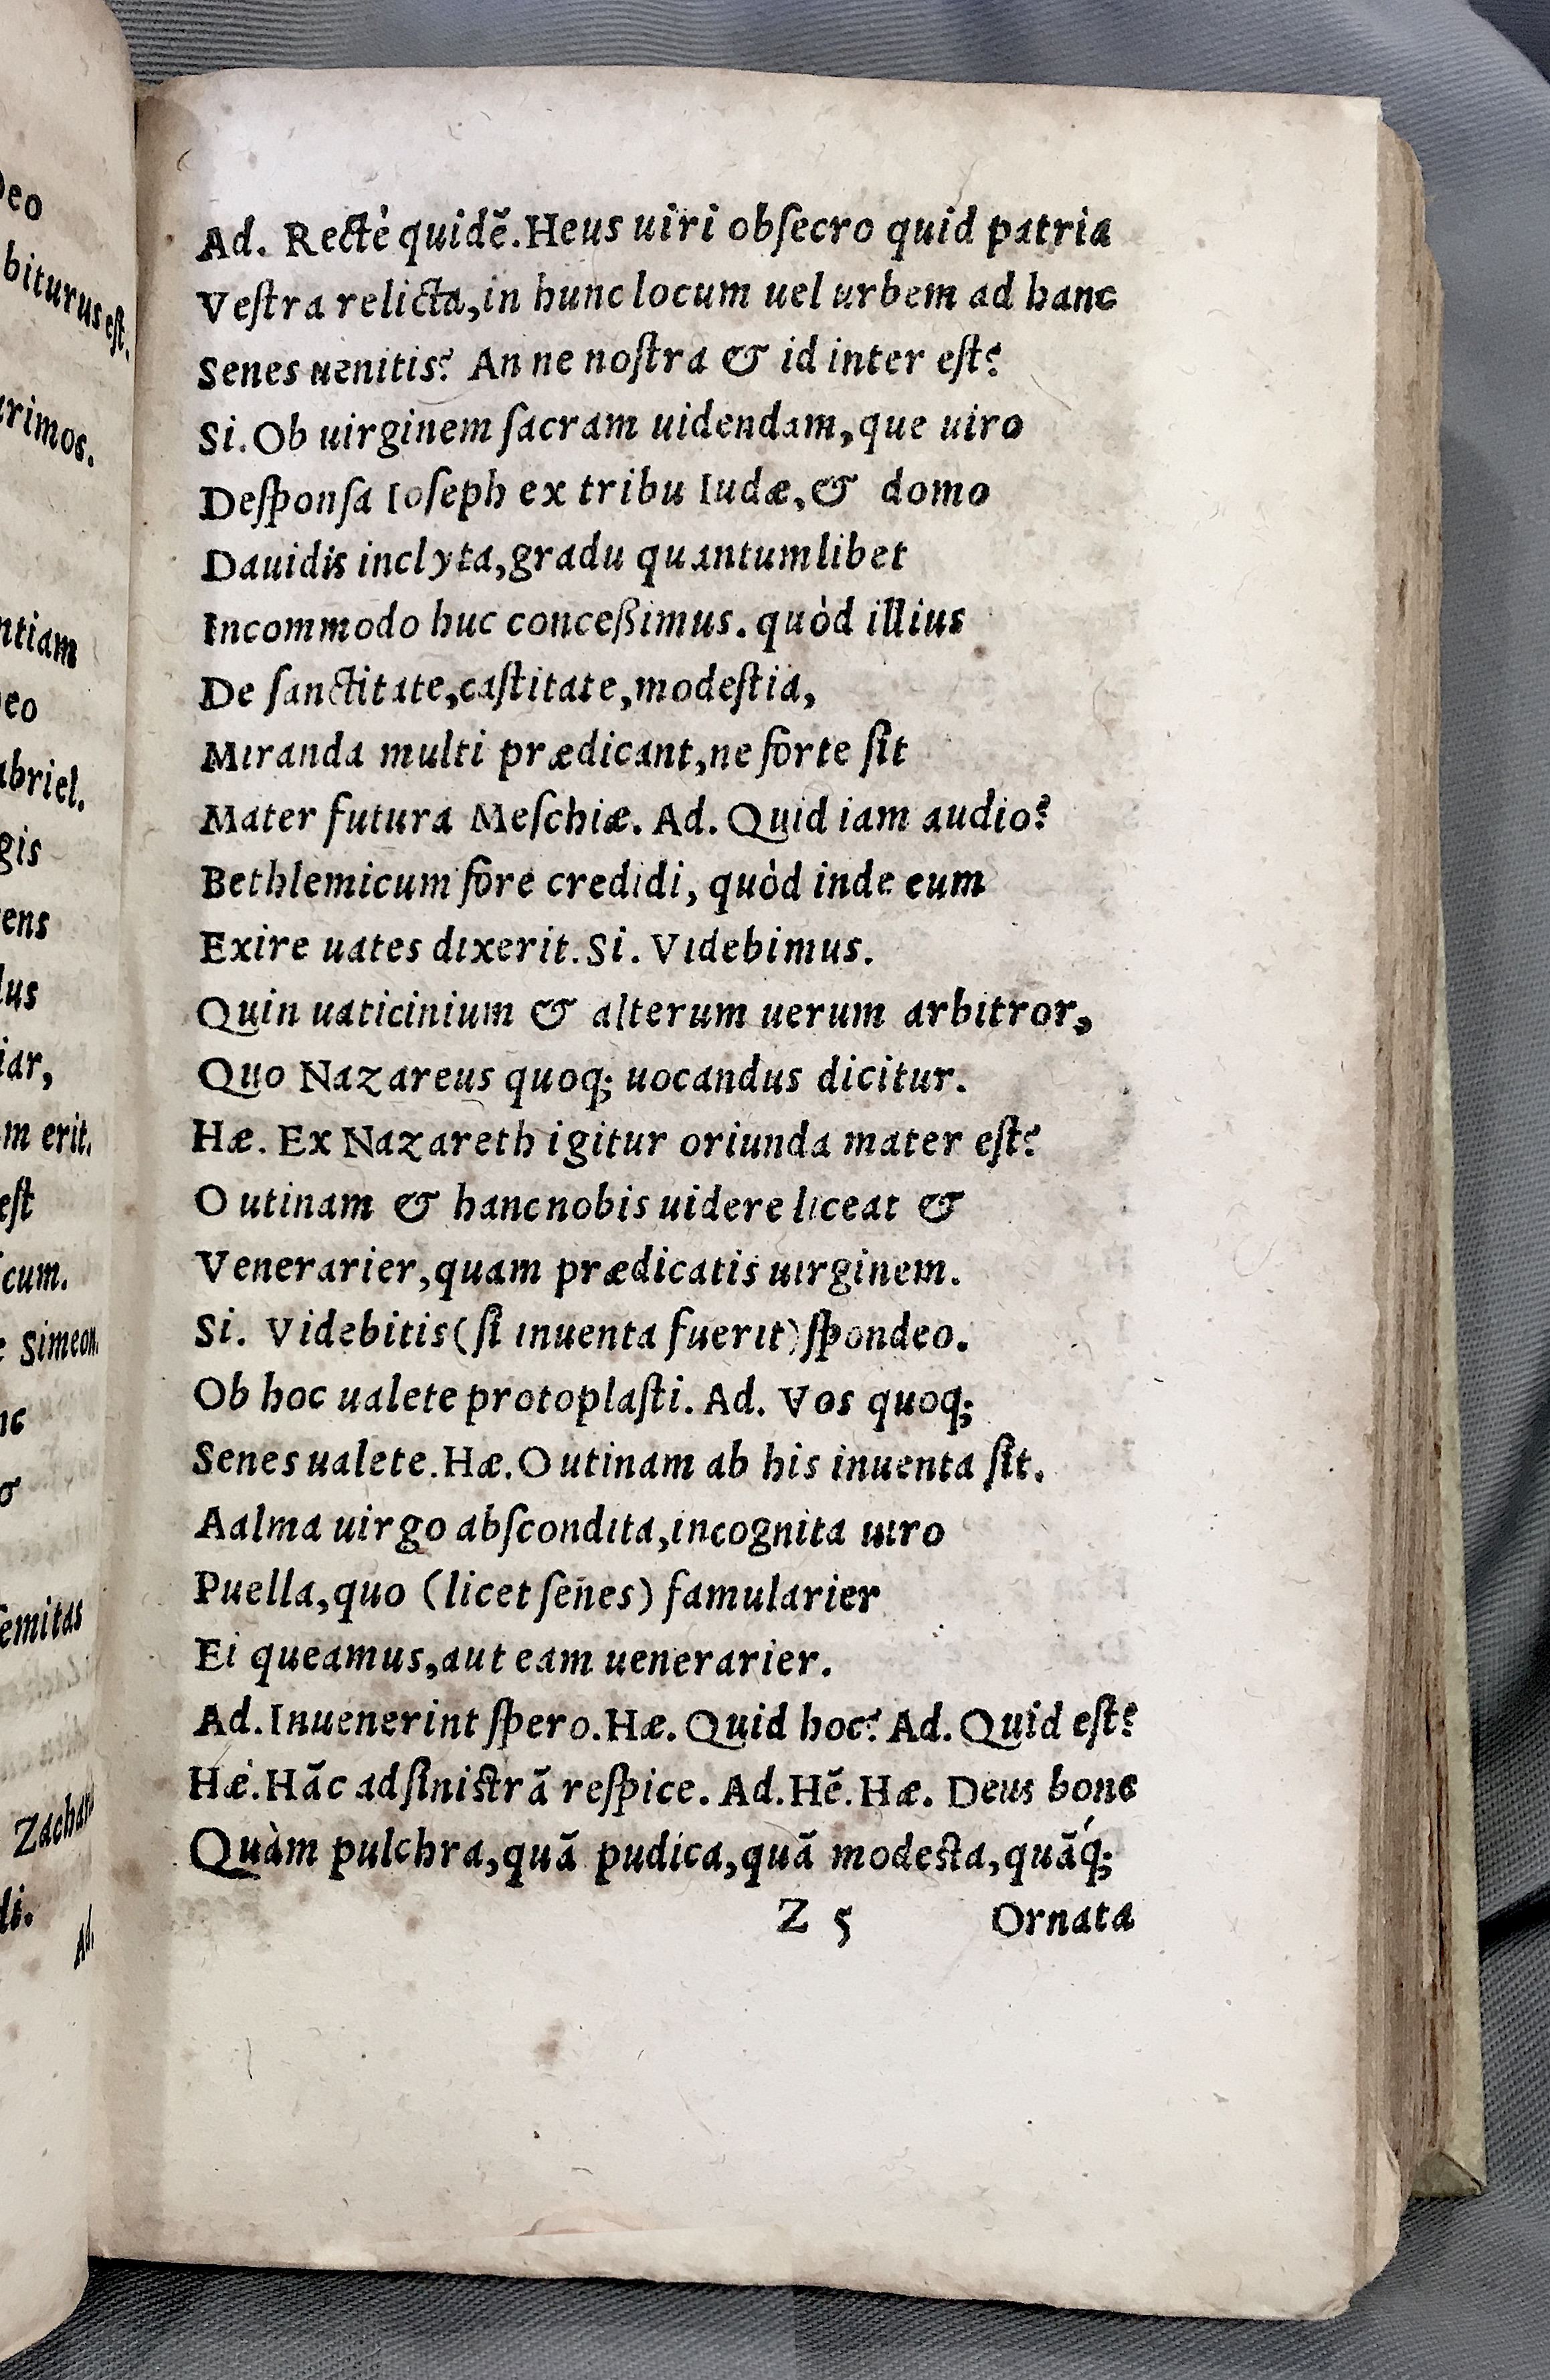 Ad. Rectè quidẽ. Heus uiri obſecro quid patria
Veſtra relicta, in hunc locum uel urbem ad hanc
Senes uenitis? An ne noſtra & id inter eſt?
Si. Ob uirginem ſacram uidendam, que uiro
Deſponſa Ioſeph ex tribu Iudæ, & domo
Dauidis inclyta, gradu quantumlibet
Incommodo huc conceßimus. quòd illius
De ſanctitate, caſtitate, modeſtia,
Miranda multi prædicant, ne forte ſit
Mater futura Meſchiæ. Ad. Quid iam audio?
Bethlemicum fore credidi, quòd inde eum
Exire uates dixerit. Si. Videbimus.
Quin uaticinium & alterum uerum arbitror,
Quo Nazareus quoq; uocandus dicitur.
Hæ. Ex Nazareth igitur oriunda mater eſt?
O utinam & hanc nobis uidere liceat &
Venerarier, quam prædicatis uirginem.
Si. Videbitis (ſi inuenta fuerit) ſpondeo.
Ob hoc ualete protoplaſti. Ad. Vos quoq;
Senes ualete. Hæ. O utinam ab his inuenta ſit.
Aalma uirgo abſcondita, incognita uiro
Puella, quo (licet ſenes) famularier
Ei queamus, aut eam uenerarier.
Ad. Inuenerint ſpero. Hæ. Quid hoc? Ad. Quid eſt?
Hæ. Hãc ad ſiniſtrã reſpice. Ad. Hẽ. Hæ. Deus bone
Quàm pulchra, quã pudica, quã modeſta, quãq́;
Z 5 Ornata
eo
biturus eſt.
rimos.
ntiam
eo
abriel.
gis
ens
lus
iar,
m erit.
eſt
cum.
Simeon.
emitas
Zachari
di.
Ad.